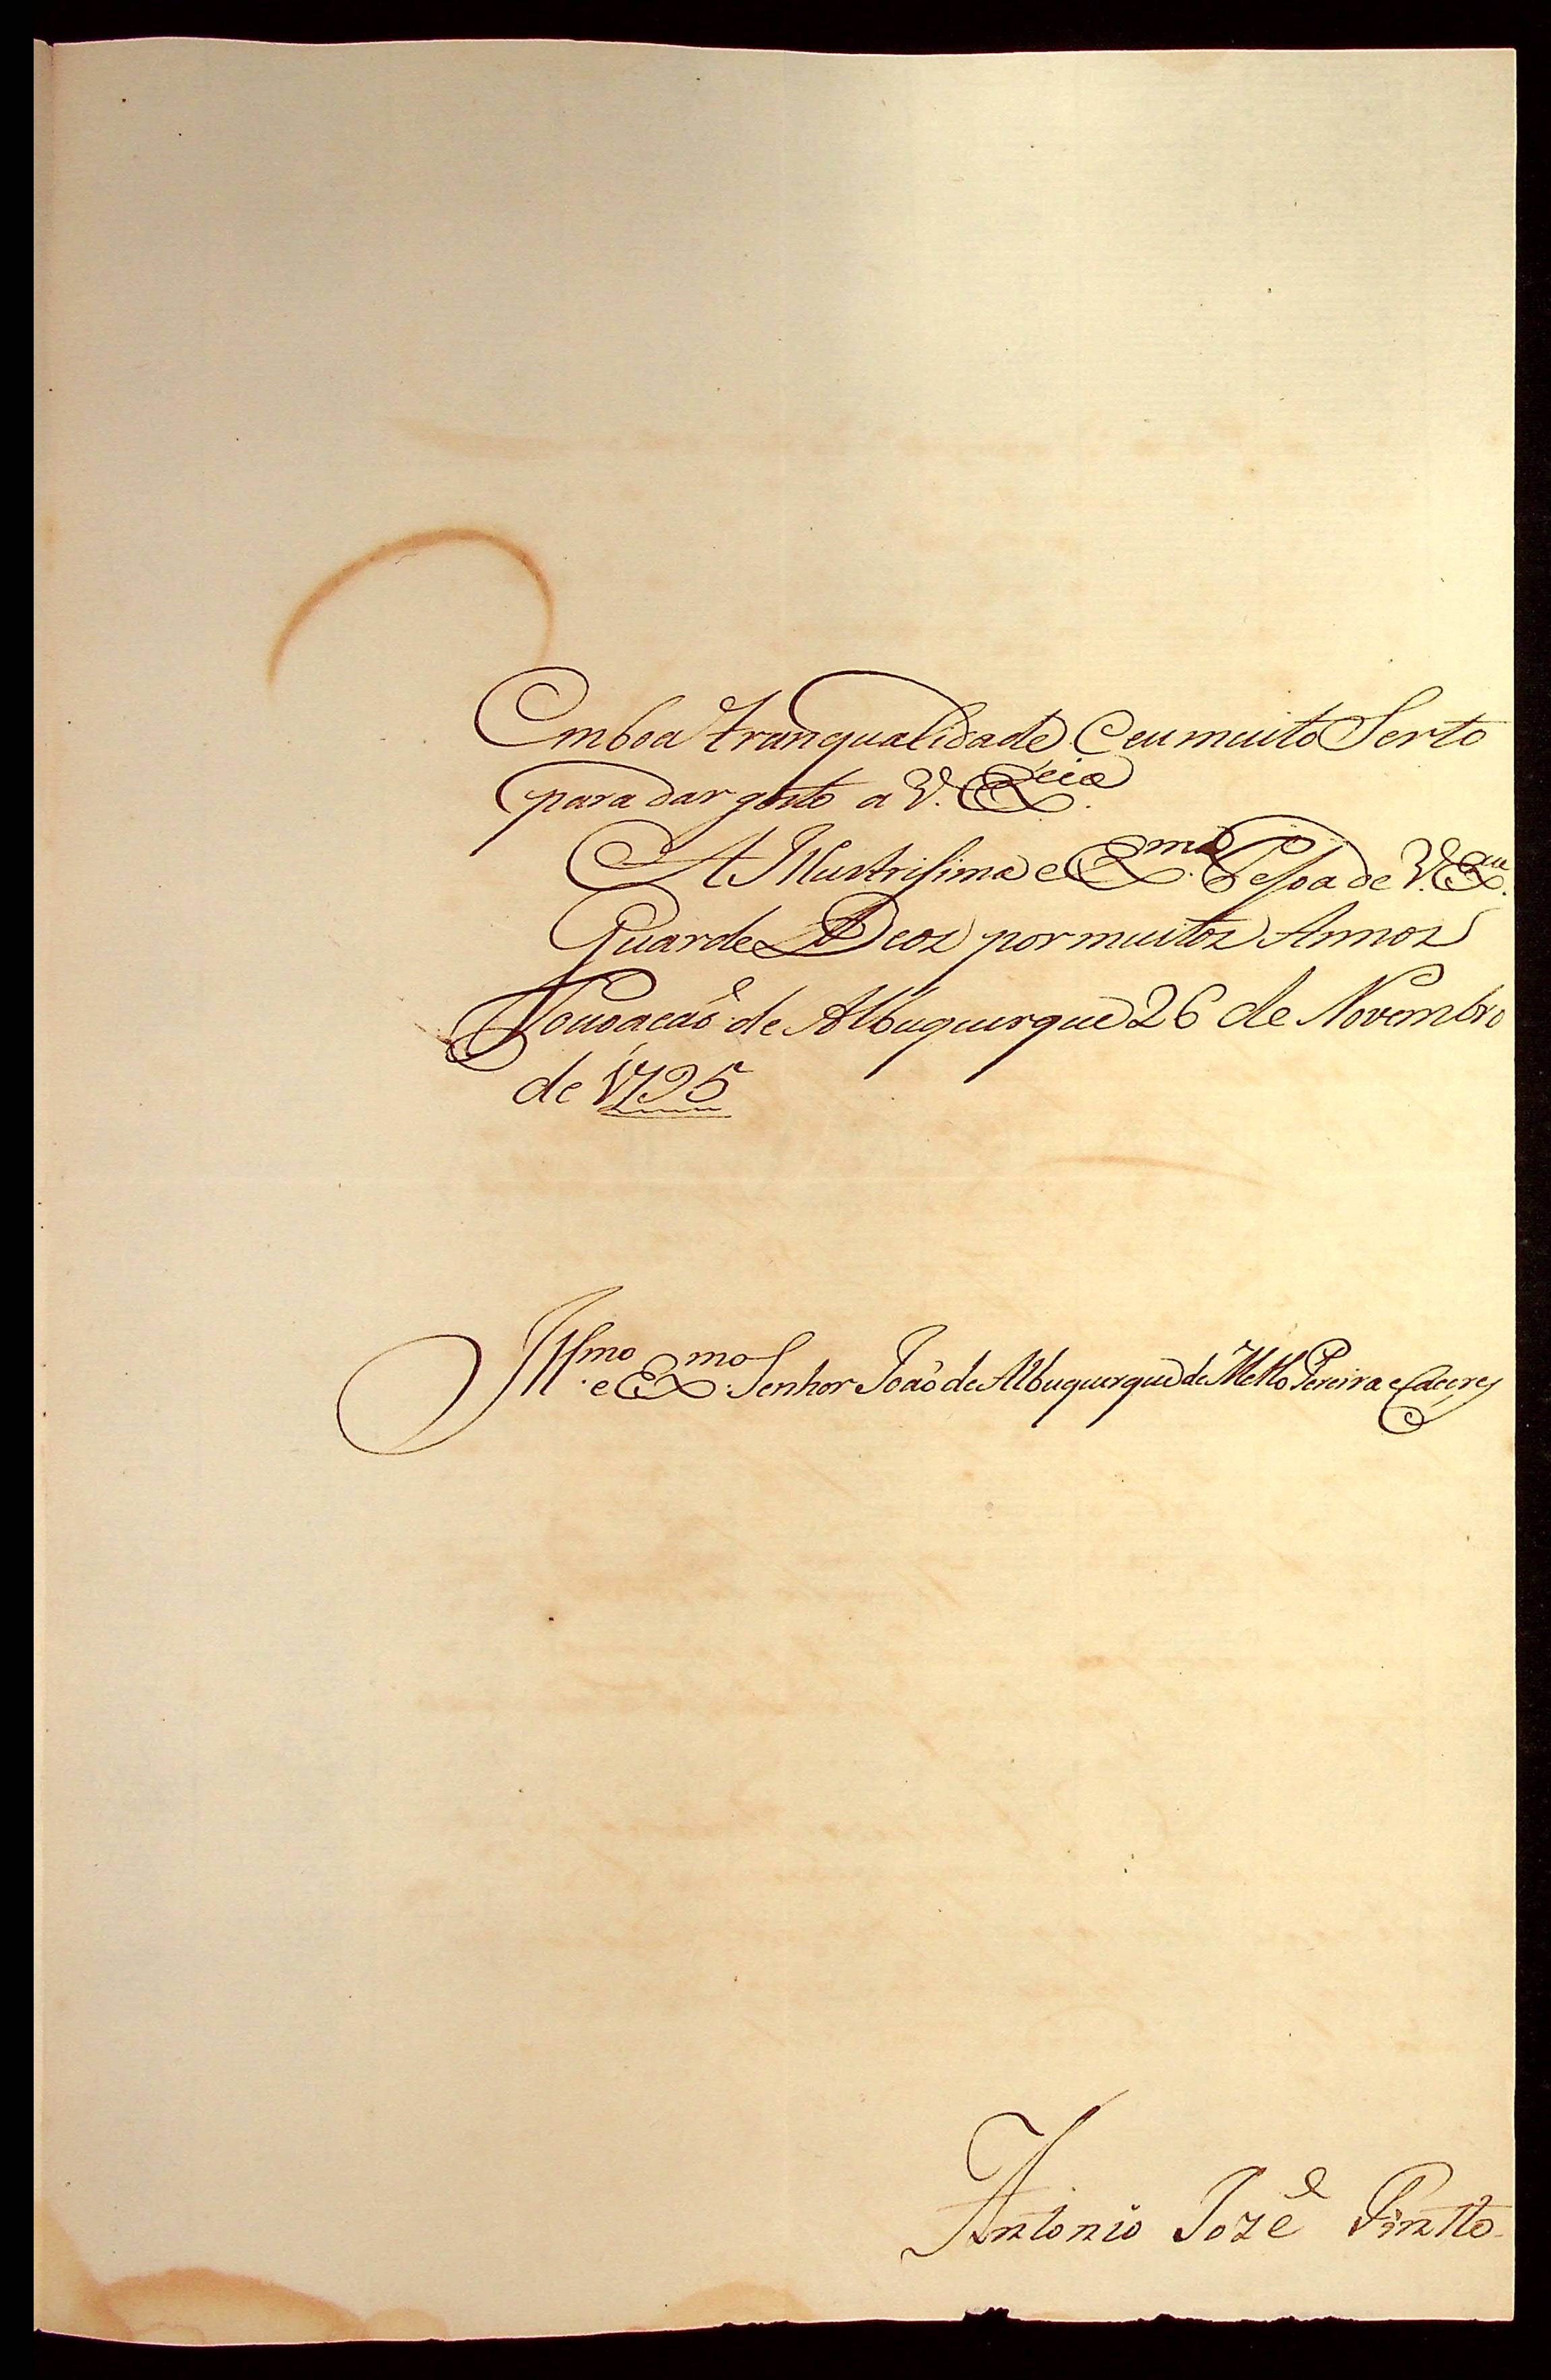 Emboa tranqualidade, e eu muito Serto
para dar gosto a V. Ex.cia
A Illustrissima e Ex.ma Pessoa de V. Ex.cia
Guarde Deos por muitos Annos
Povoacaó de Albuquerque 26 de Novembro
de 1795
Ill.mo e Ex.mo Senhor Joaõ de Albuquerque de Mello Pereira e Caceres
Antonio Jozé Pintto